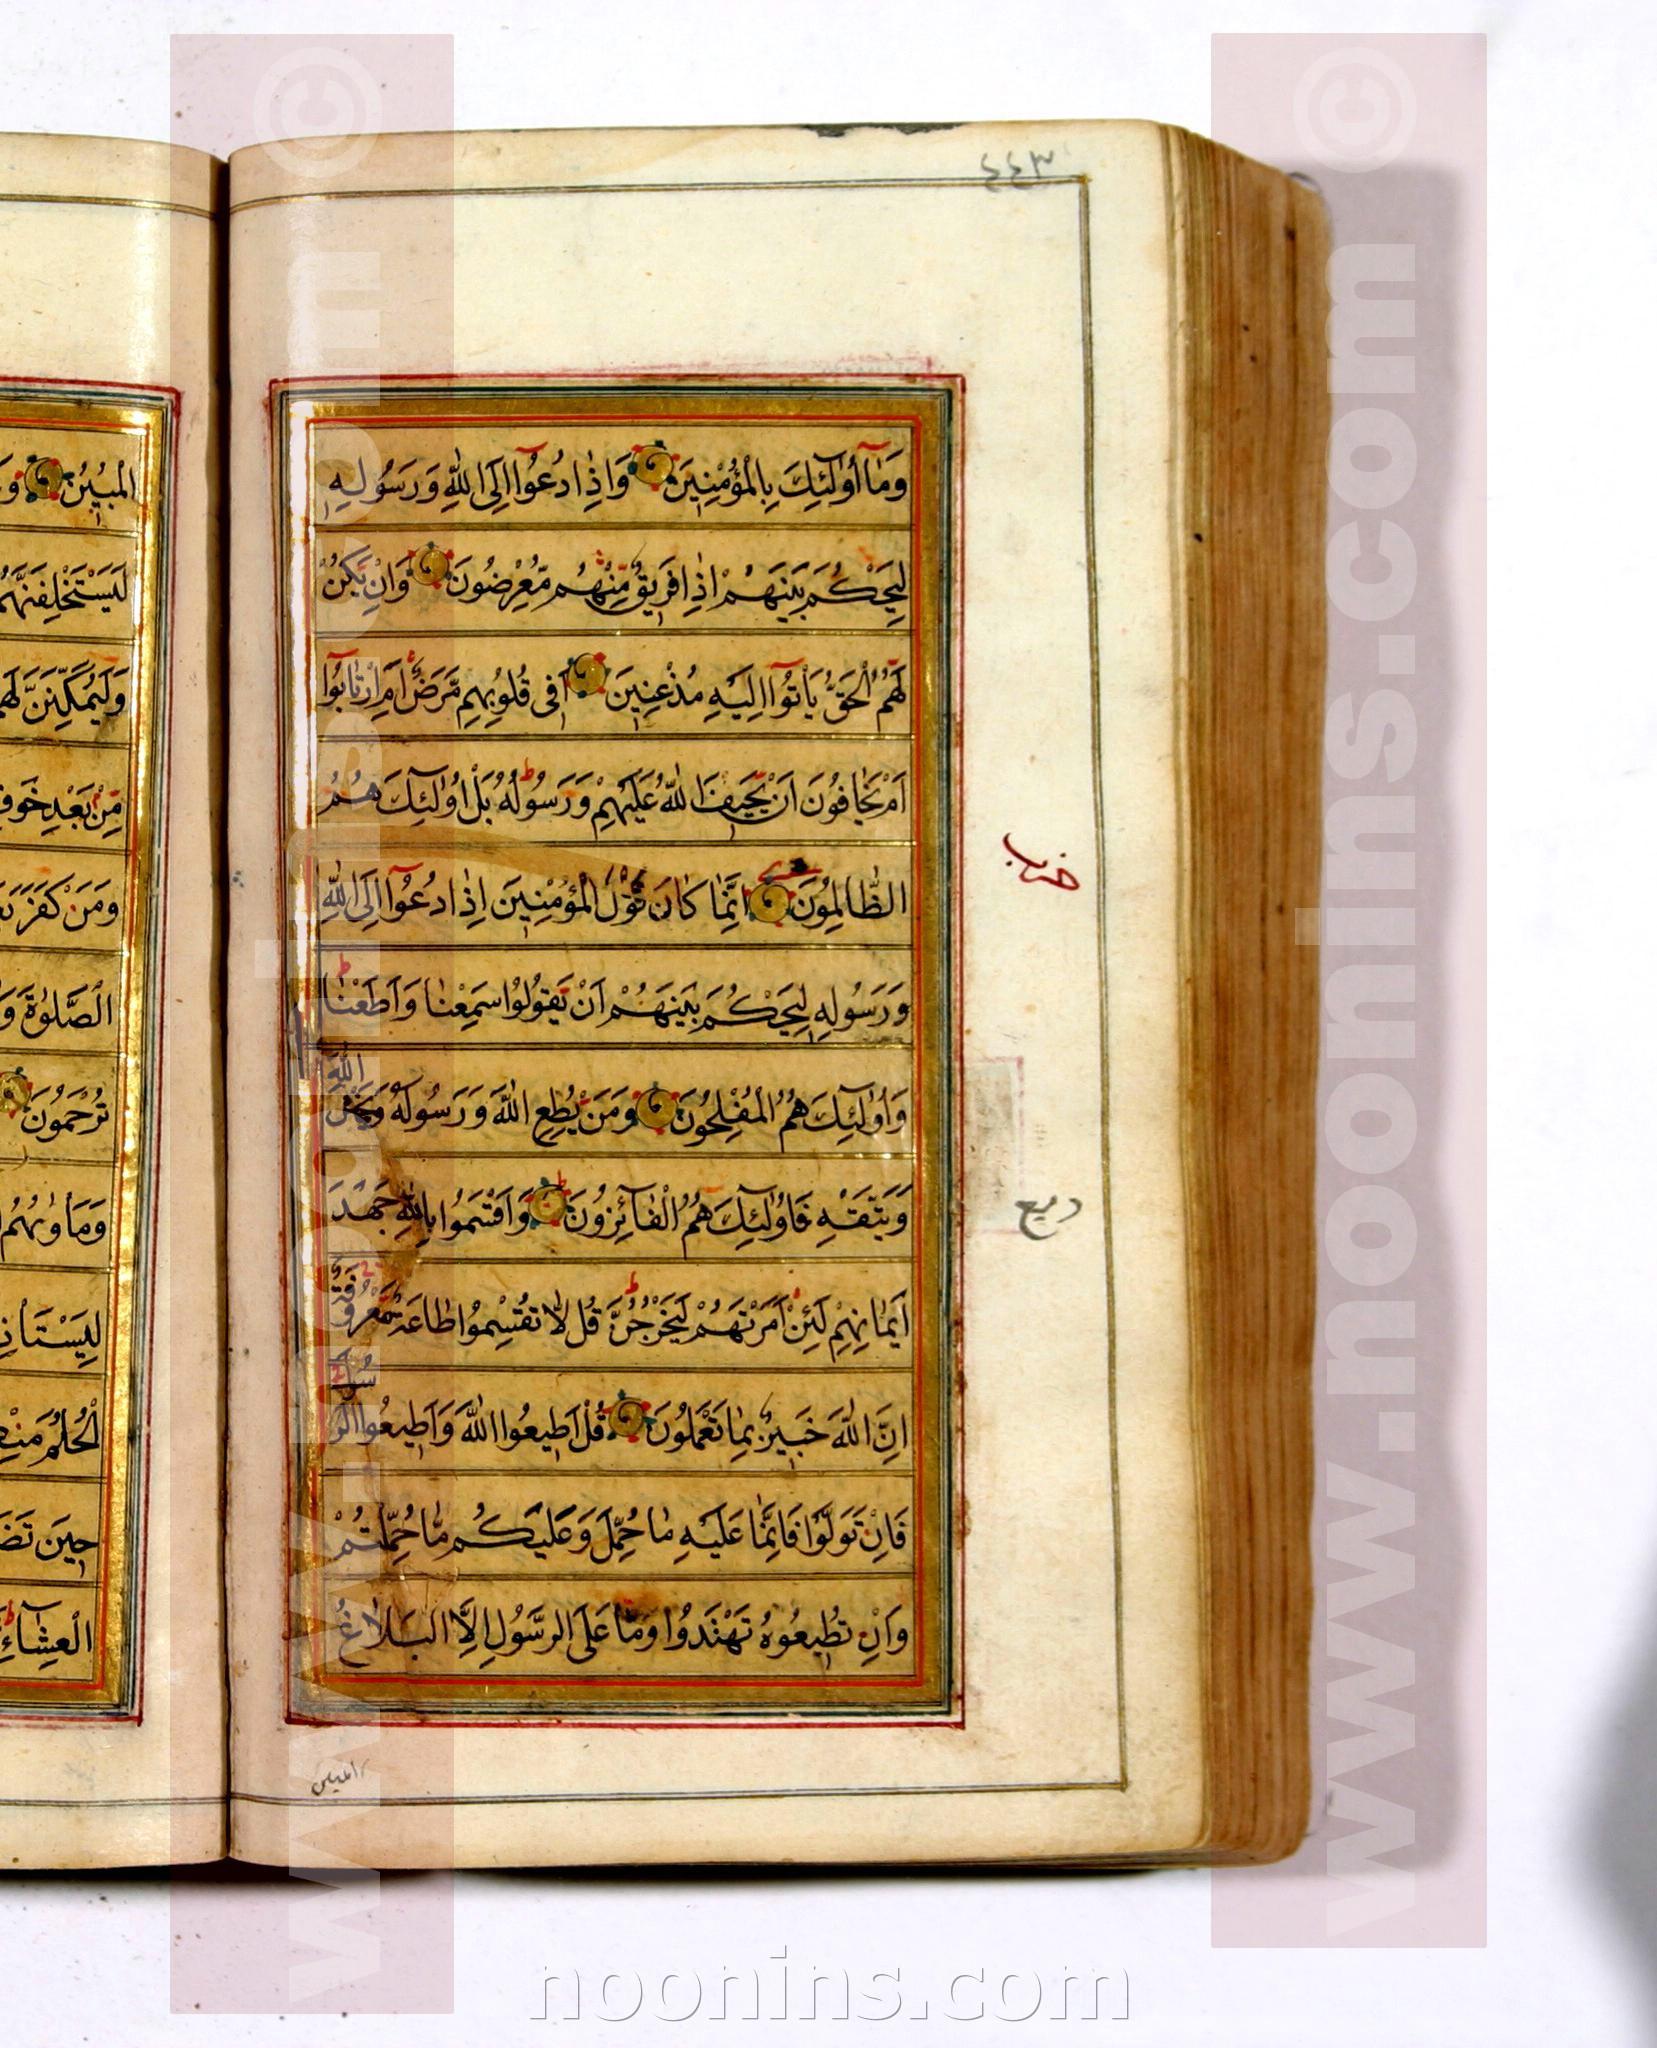 ٤٤٣
وَمَآ أُولٰئِكَ بِالْمُؤْمِنِينَ وَاِذَا دُعُوٓا اِلَى اللّٰهِ وَرَسُولِهِ
لِيَحْكُمَ بَيْنَهُمْ اِذَا فَرِيقٌ مِّنْهُم مُّعْرِضُونَ وَاِنْ يَكُنْ
لَّهُمُ الْحَقُّ يَاْتُوٓا اِلَيْهِ مُذْعِنِينَ اَفِى قُلُوبِهِم مَّرَضٌ اَمِ ارْتَابُوٓا
اَمْ يَخَافُونَ اَنْ يَّحِيفَ اللّٰهُ عَلَيْهِمْ وَرَسُولُهُ بَلْ اُولٰٓئِكَ هُمُ
الظَّالِمُونَ اِنَّمَا كَانَ قَوْلَ الْمُؤْمِنِينَ اِذَا دُعُوٓا اِلَى اللّٰهِ
وَرَسُولِهِ لِيَحْكُمَ بَيْنَهُمْ اَنْ يَقُولُوا سَمِعْنَا وَاَطَعْنَا
وَاُولٰٓئِكَ هُمُ الْمُفْلِحُونَ وَمَنْ يُطِعِ اللّٰهَ وَرَسُولَهُ وَيَخْشَ اللّٰهَ
وَيَتَّقْهِ فَاُولٰٓئِكَ هُمُ الْفَآئِزُونَ وَاَقْسَمُوا بِاللّٰهِ جَهْدَ
اَيْمَانِهِمْ لَئِنْ اَمَرْتَهُمْ لَيَخْرُجُنَّ قُل لَّا تُقْسِمُوا طَاعَةٌ مَّعْرُوفَةٌ
اِنَّ اللّٰهَ خَبِيرٌ بِمَا تَعْمَلُونَ قُلْ اَطِيعُوا اللّٰهَ وَاَطِيعُوا الرَّسُولَ
فَاِنْ تَوَلَّوْا فَاِنَّمَا عَلَيْهِ مَا حُمِّلَ وَعَلَيْكُم مَّا حُمِّلْتُمْ
وَاِنْ تُطِيعُوهُ تَهْتَدُوا وَمَا عَلَى الرَّسُولِ اِلَّا الْبَلَاغُ
المبين
حزب
الْمُبِينُ
لَيَسْتَخْلِفَنَّهُمْ
وَلَيُمَكِّنَنَّ لَهُمْ
مِّنْ بَعْدِ خَوْفِ
وَمَنْ كَفَرَ
الصَّلٰوةَ
تُرْحَمُونَ
وَمَاْوٰىهُمُ
الْحُلُمَ مِنْكُمْ
حِينَ
الْعِشَآءِ
www.noonins.com ©
www.noonins.com ©
noonins.com